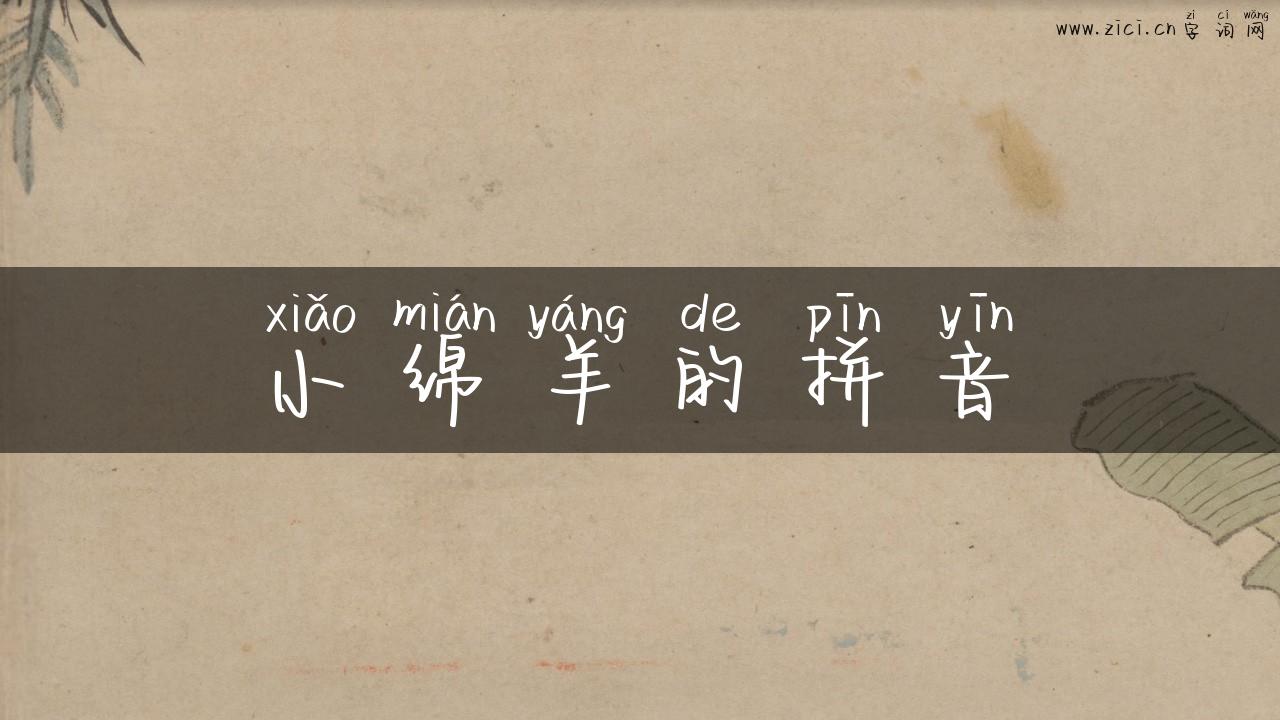 zì cí wǎng
www.zici.cn 字词网
xiǎo mián yáng de pīn yīn
小绵羊的拼音